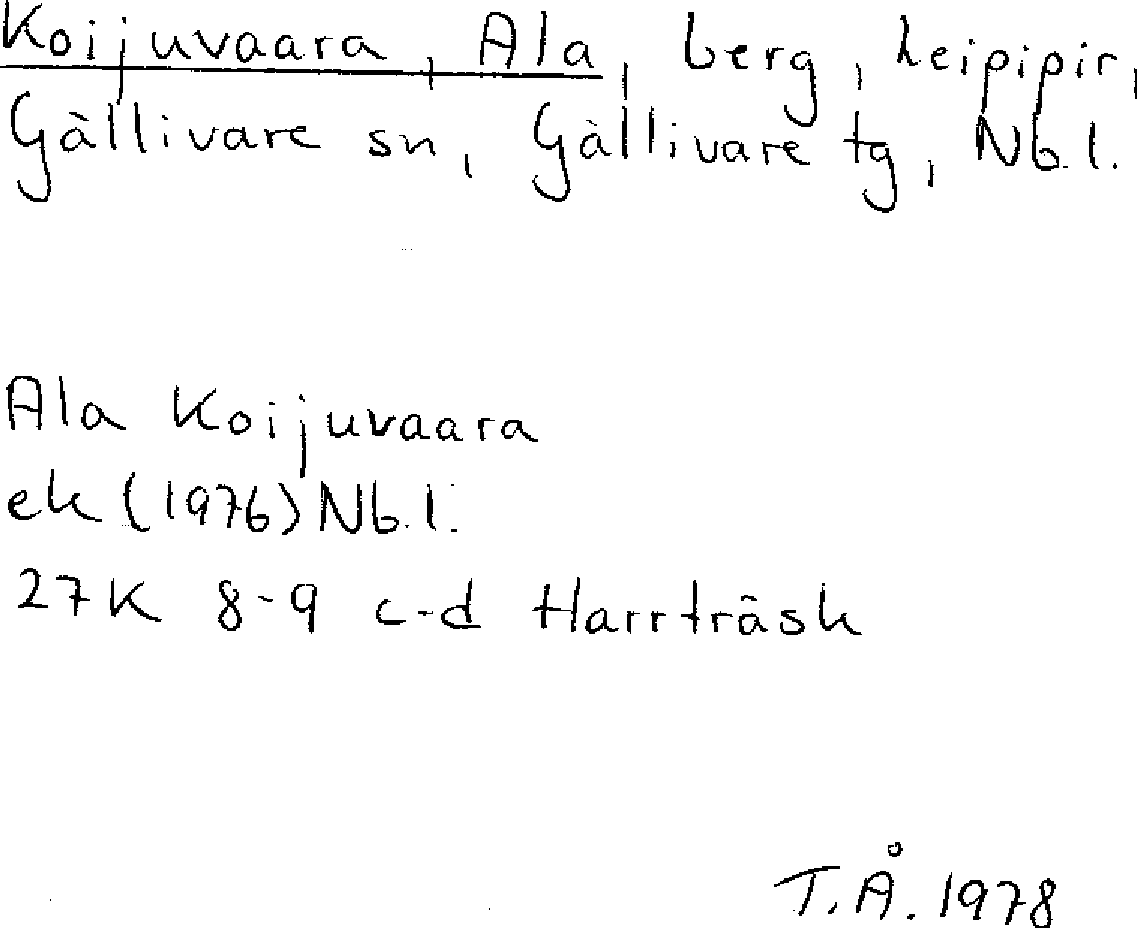 Koijuvaara, Ala, berg, Leipipir,
Gällivare sn, Gällivare tg, Nb.l.
Ala Koijuvaara
ek (1976) Nb.l.
27K 8-9 c-d Harrträsk
T.Å. 1978